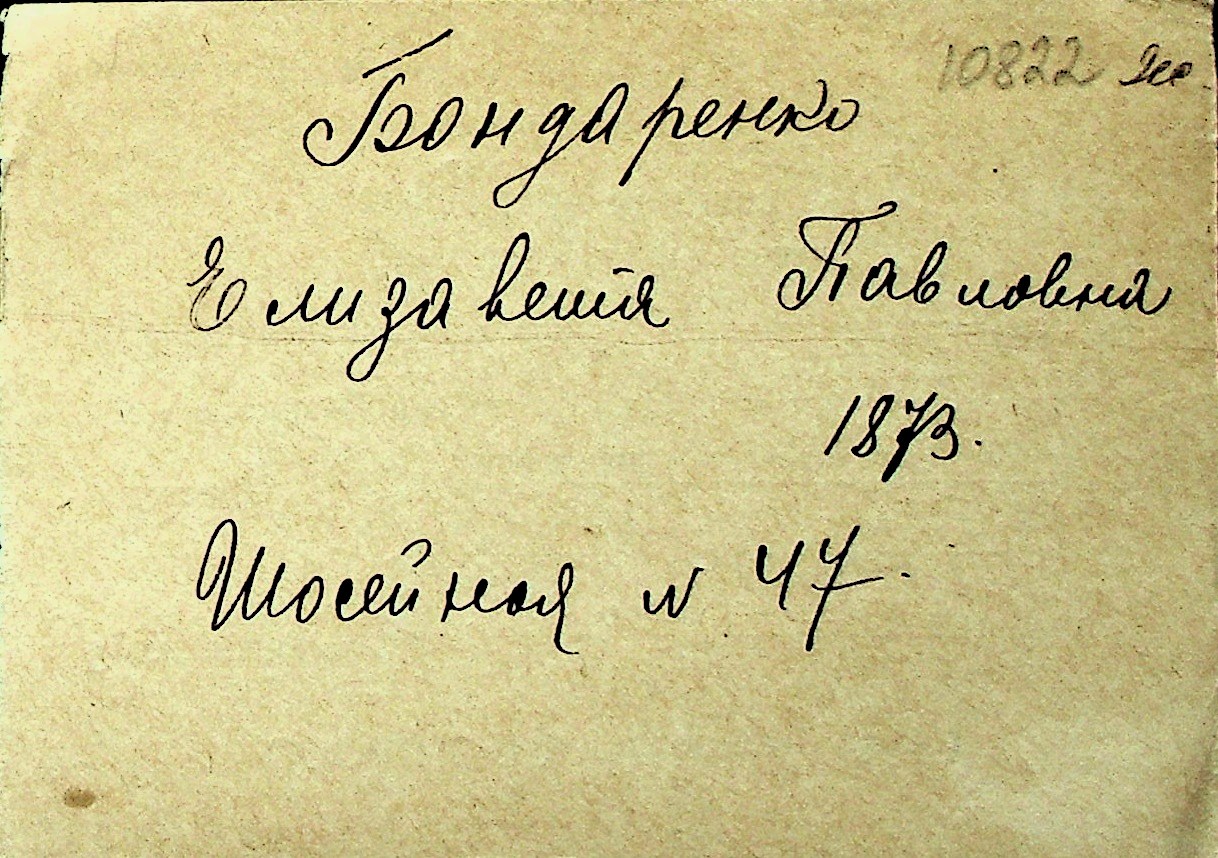 10822
Бондаренко
Елизавета Павловна
1873.
Шосейная N 47.